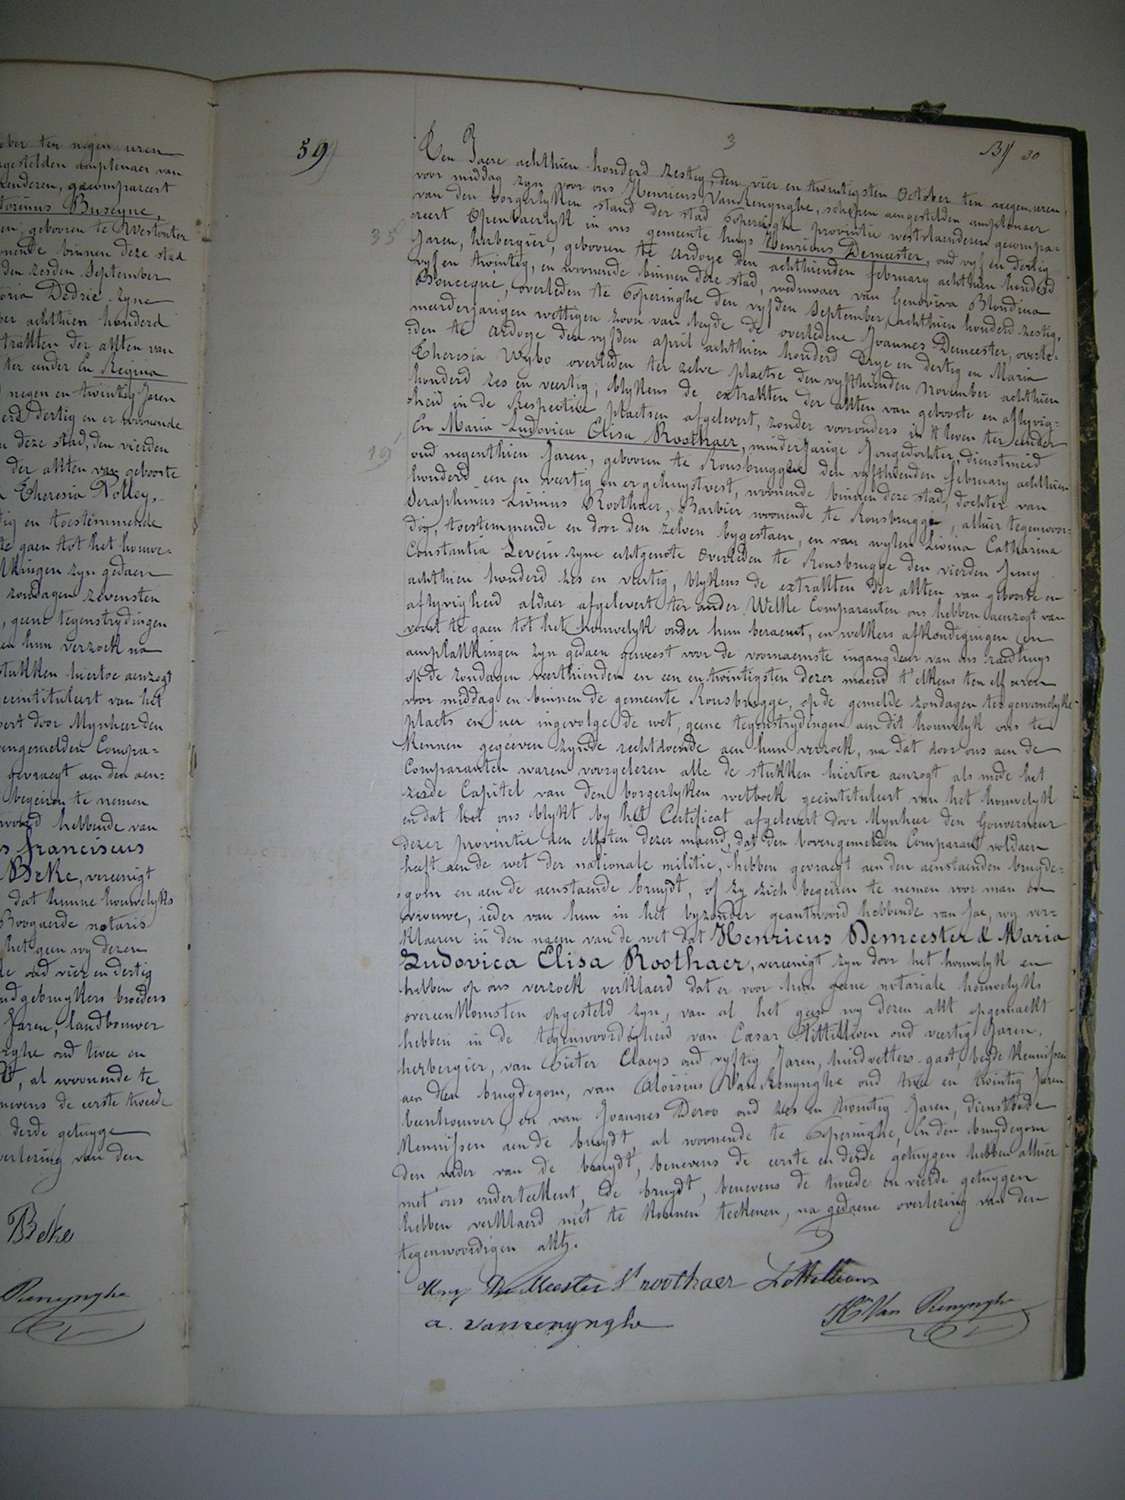 ober ten negen uren
gestelden amptenaer van
enderen, gecompareert
torinus Buseyne,
en, gebooren te Westouter
nende binnen deze stad
den zesden September
oria Dedrie zyne
ber achthien honderd
trakten der akten van
ter ander En Regina
negen en twintig Jaren
erd dertig en er woonende
n deze stad, den vierden
der akten van geboorte
Theresia Nolley,
tig en toestemmende
te gaen tot het houwe-
kkingen zyn gedaen
zondagen zevensten
, geene tegenstrydingen
en hun verzoek na
stukken hiertoe aenzogt
geintituleert van het
vert door Mynheer den
engemelden Compa-
gevraegt aen den aen-
begeiren te nemen
woord hebbende van
s franciscus
Beke, vereenigt
dat hunne houwelyks
Boogaerde notaris
het geen wy dezen
le oud vier en dertig
ndgebruykers broeders
Jaren, landbouwer
nghe oud twee en
dt, al woonende te
benevens de eerste tweede
derde getuyge
verlezing van den
Beke
Renynghe
59
3
Bl 30
Den Jaere achthien honderd zestig, den vier en twintigsten October ten negen uren,
voor middag zyn voor ons Henricus Vanrenynghe, schepen aengestelden amptenaer
van den borgerlyken stand der stad Poperinghe provintie westvlaenderen gecompa-
reert Openbaerlyk in ons gemeente huys Henricus Demeester, oud vyf en dertig
35
Jaren, herbergier, gebooren te Ardoye den achthienden february achthien honderd
vyf en twintig, en woonende binnen deze stad, weduwaer van Genoviva Blondina
Bouceque, overleden te Poperinghe den vyfden September achthien honderd zestig,
meerderjarigen wettigen zoon van beyde de overledene Joannes Demeester, overle-
den te Ardoye den vyfden april achthien honderd drye en dertig en Maria
Theresia Wybo overleden ter zelve plaetse den vyfthienden november achthien
honderd zes en veertig; blykens de extrakten der akten van geboorte en aflyvig-
heid in de Respective plaetsen afgelevert, zonder voorouders in 't leven ter ander
En Maria Ludovica Elisa Roothaer, minderjarige Jongedochter, dienstmeid
19
oud negenthien Jaren, gebooren te Rousbrugge den vyfthienden february achthien
honderd een en veertig en er gehuystvest, woonende binnen deze stad, dochter van
Seraphinus Livinus Roothaer, Barbier woonende te Rousbrugge, alhier tegenwoor-
dig, toestemmende en door den zelven bygestaen, en van wylen Livina Catharina
Constantia Severin zyne echtgenote overleden te Rousbrugge den vierden Juny
achthien honderd zes en veertig, blykens de extrakten der akten van geboorte en
aflyvigheid aldaer afgelevert ter ander. Welke Comparanten ons hebben aenzogt van
voort te gaen tot het houwelyk onder hun beraemt, en welkers afkondigingen en
aenplakkingen zyn gedaen geweest voor de voornaemste ingangdeur van ons raedhuys
op de zondagen veerthienden en een en twintigsten dezer maend t'elkens ten elf uren
voor middag en binnen de gemeente Rousbrugge, op de gemelde zondagen ter gewoonelyke
plaets en uer ingevolge de wet, geene tegenstrydingen aen dit houwelyk ons te
kennen gegeeven zynde rechtdoende aen hun verzoek, na dat door ons aen de
Comparanten waren voorgelezen alle de stukken hiertoe aenzogt als mede het
zesde Capitel van den borgerlyken wetboek geintituleert van het houwelyk
en dat het ons blykt by het Certificat afgelevert door Mynheer den Gouverneur
dezer provintie den elfsten dezer maend, dat den bovengemelden Comparant voldaen
heeft aen de wet der nationale militie, hebben gevraegt aen den aenstaenden bruyde-
gom en aen de aenstaende bruydt, of zy zich begeiren te nemen voor man en
vrouwe, ieder van hun in het byzonder geantwoord hebbende van Jae, wy ver-
klaeren in den naem van de wet dat Henricus Demeester & Maria
Ludovica Elisa Roothaer, vereenigt zyn door het houwelyk en
hebben op ons verzoek verklaerd dat er voor hun geene notariale houwelyks
overeenkomsten opgesteld zyn, van al het geen wy dezen akt opgemaekt
hebben in de tegenwoordigheid van Cæsar Lottelleven oud veertig Jaren,
herbergier, van Pieter Claeys oud vyftig Jaren, huidvetters gast, beyde Kennissen
aen den bruydegom, van Aloisius Vanrenynghe oud twee en twintig Jaren
beenhouwer, en van Joannes Deroo oud zes en twintig Jaren, dienstbode
Kennissen aen de bruydt, al woonende te Poperinghe, En den bruydegom
den vader van de bruydt, benevens de eerste en derde getuygen hebben alhier
met ons onderteekent, de bruydt, benevens de tweede en vierde getuygen
hebben verklaerd niet te konnen teekenen, na gedaene overlezing van den
tegenwoordigen akt.
Hny DeMeester Sl roothaer Lottelleven
a. vanrenynghe
H. Van Renynghe